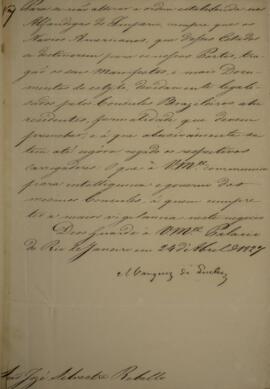 Para se não alterar a ordem estabelecida nas
Alfandegas do Imperio, cumpre que os
Navios Americanos, que desses Estados
se destinarem para os nossos Portos, tra-
gão os seus Manifestos, e mais Docu-
mentos de estylo, devidamente legali-
sados pelos Consules Brazileiros ahi
residentes, formalidade que devem
preencher, e á que
tem até agora os respectivos
carregadores. O que á V.Mce. communico
para intelligencia e governo dos
mesmos Consules, á quem cumpre
ter a maior vigilancia neste negocio
Deos Guarde á V.Mce. Palacio
do Rio de Janeiro em 24 de Abril de 1827
Marquez de Queluz
José Silvestre Rebello